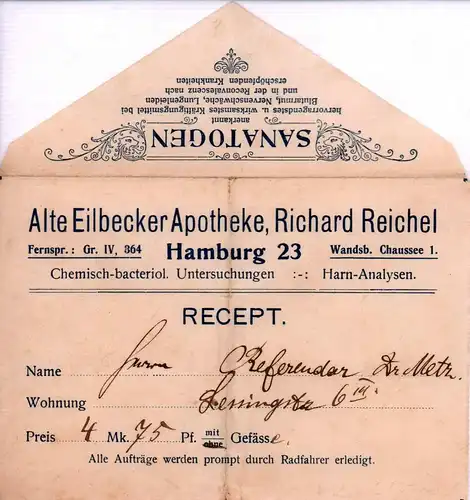 SANATOGEN
anerkannt
hervorragendstes u. wirksamstes Kräftigungsmittel bei
Blutarmut, Nervenschwäche, Lungenleiden
und in der Reconvalescenz nach
erschöpfenden Krankheiten
Alte Eilbecker Apotheke, Richard Reichel
Fernspr.: Gr. IV, 364 Hamburg 23 Wandsb. Chaussee 1.
Chemisch-bacteriol. Untersuchungen :-: Harn-Analysen.
RECEPT.
Name Herrn Referendar Dr Metz.
Wohnung Lessingstr 6 III.
Preis 4 Mk. 75 Pf. mit ohne Gefässe.
Alle Aufträge werden prompt durch Radfahrer erledigt.